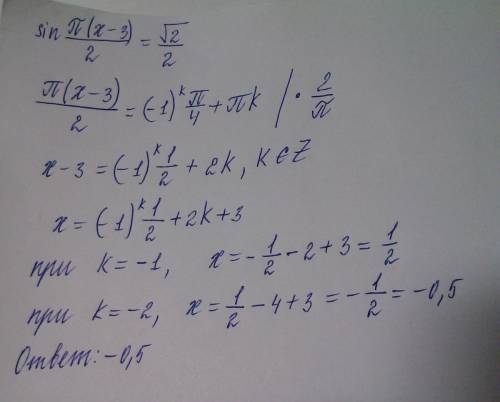 sin π(x-3)/2 = √2/2
π(x-3)/2 = (-1)^k π/4 + πk | · 2/π
x-3 = (-1)^k 1/2 + 2k, k∈Z
x = (-1)^k 1/2 + 2k + 3
при k=-1, x = -1/2 - 2 + 3 = 1/2
при k=-2, x = 1/2 - 4 + 3 = -1/2 = -0,5
Ответ: -0,5